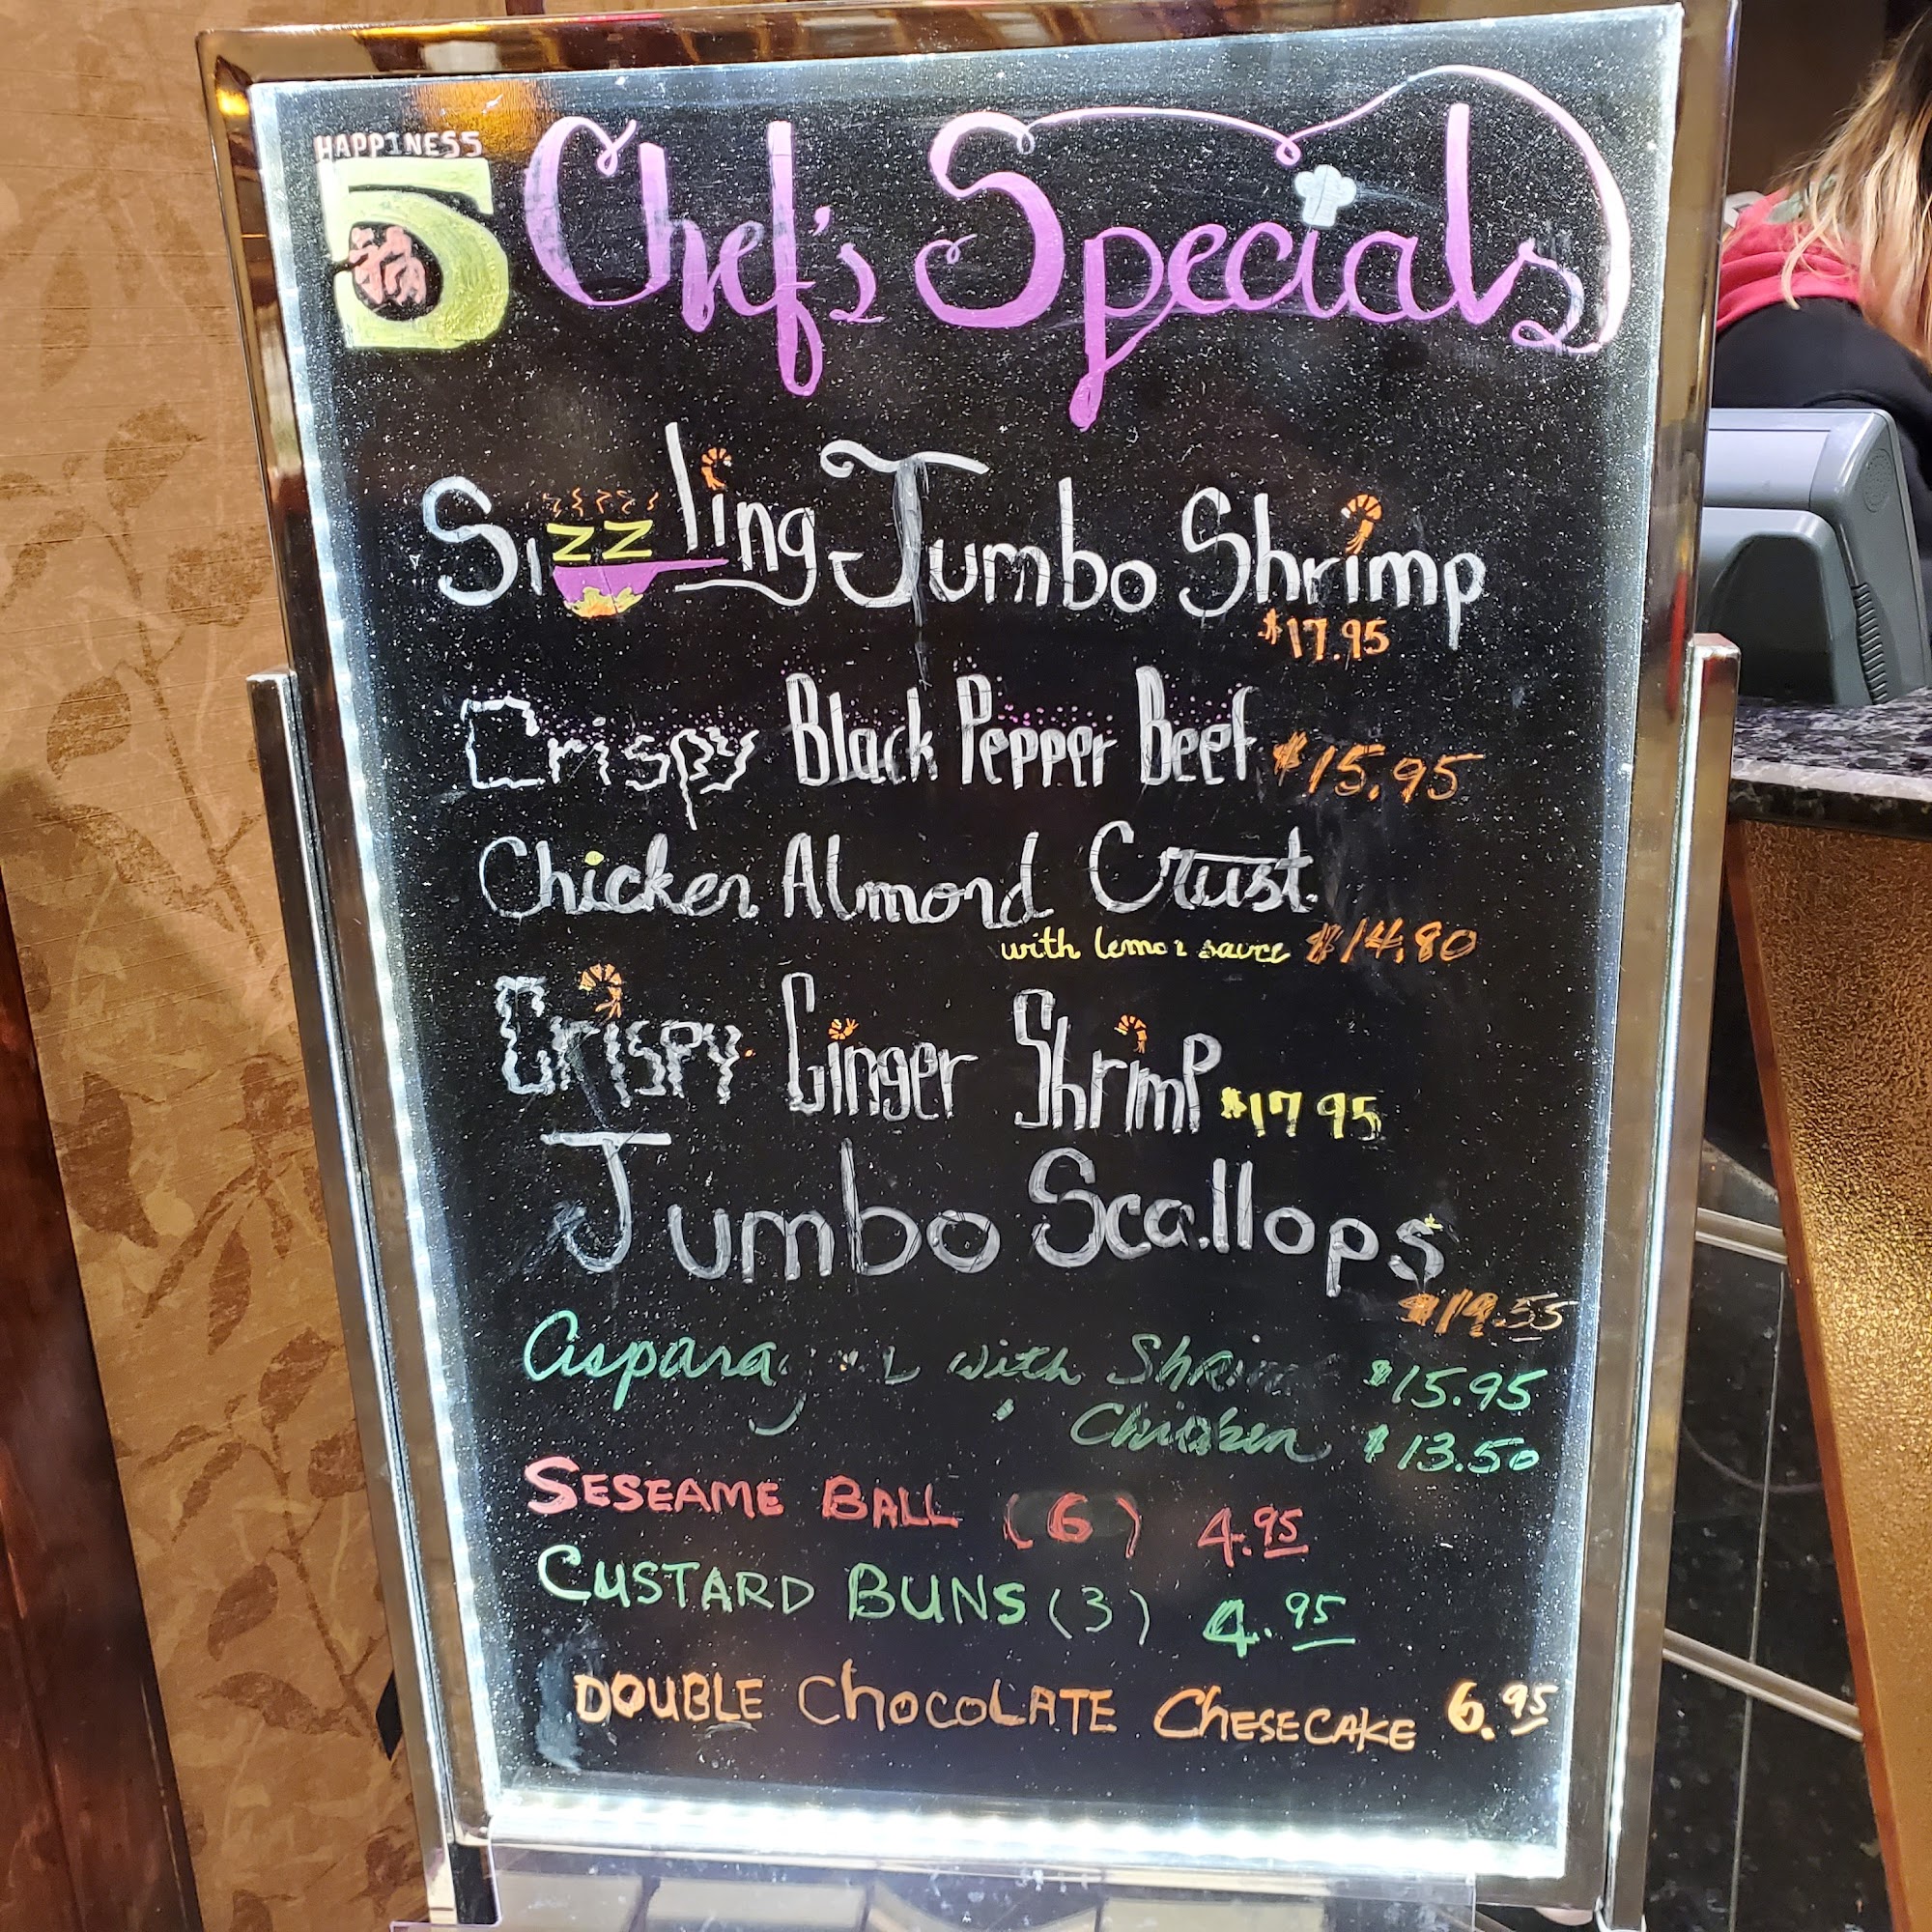 HAPPINESS
5 Chef's Specials
福
Sizzling Jumbo Shrimp
$17.95
Crispy Black Pepper Beef $15.95
Chicken Almond Crust
with lemon sauce $14.80
Crispy Ginger Shrimp $17 95
Jumbo Scallops
$19.55
with $15.95
Chicken $13.50
SESEAME BALL (6) 4.95
CUSTARD BUNS (3) 4.95
DOUBLE CHOCOLATE CHESECAKE 6.95